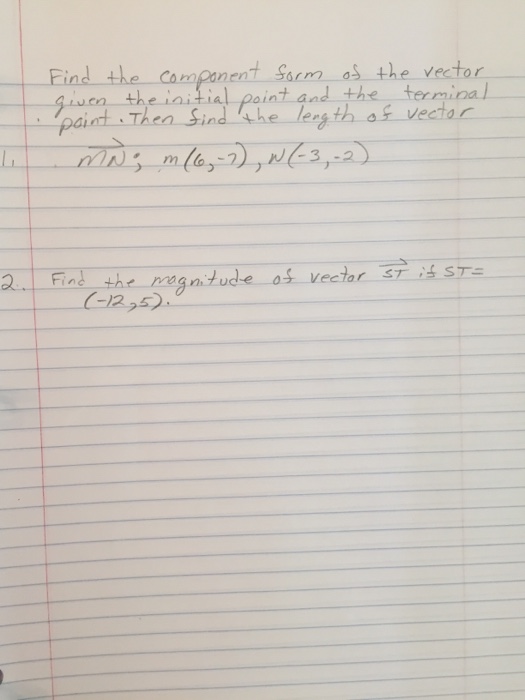 Find the component form of the vector
given the initial point and the terminal
point. Then find the length of vector
1. MN; m(6,-7), N(-3,-2)
2. Find the magnitude of vector ST if ST=
(-12,5).